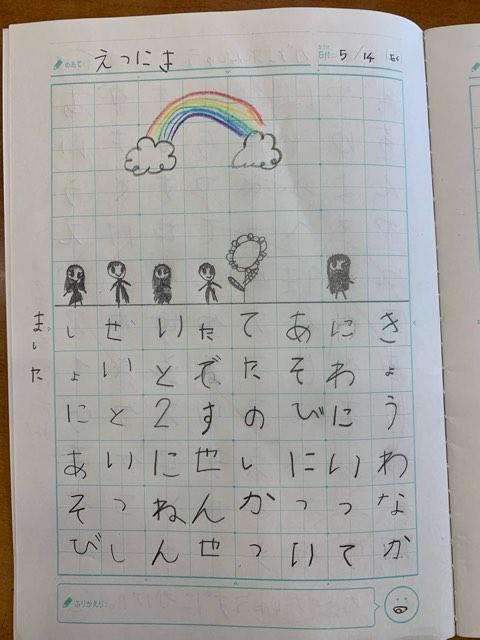 めあて: えつにき
日付: 5/14
きょうわなか
にわにいって
あそびにっい
てたのしかっ
たですせんせ
いと2にねん
ぜいといっし
しょにあそび
ました
ふりかえり: